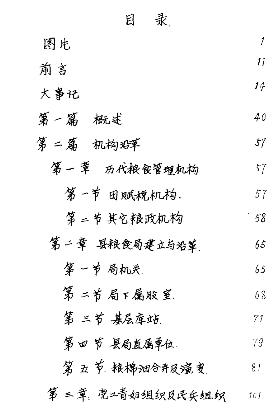 目 录
图片 1
前言 11
大事记 14
第一篇 概述 40
第二篇 机构沿革 57
第一章 历代粮食管理机构 57
第一节 田赋税机构. 57
第二节 其它粮政机构 58
第二章 县粮食局建立与沿革. 65
第一节 局机关. 65
第二节 局下属股室. 68
第三节 基层库站. 71
第四节 县局直属单位. 79
第五节 粮棉油分开及演变 81
第三章. 党工青妇组织及民兵组织 101